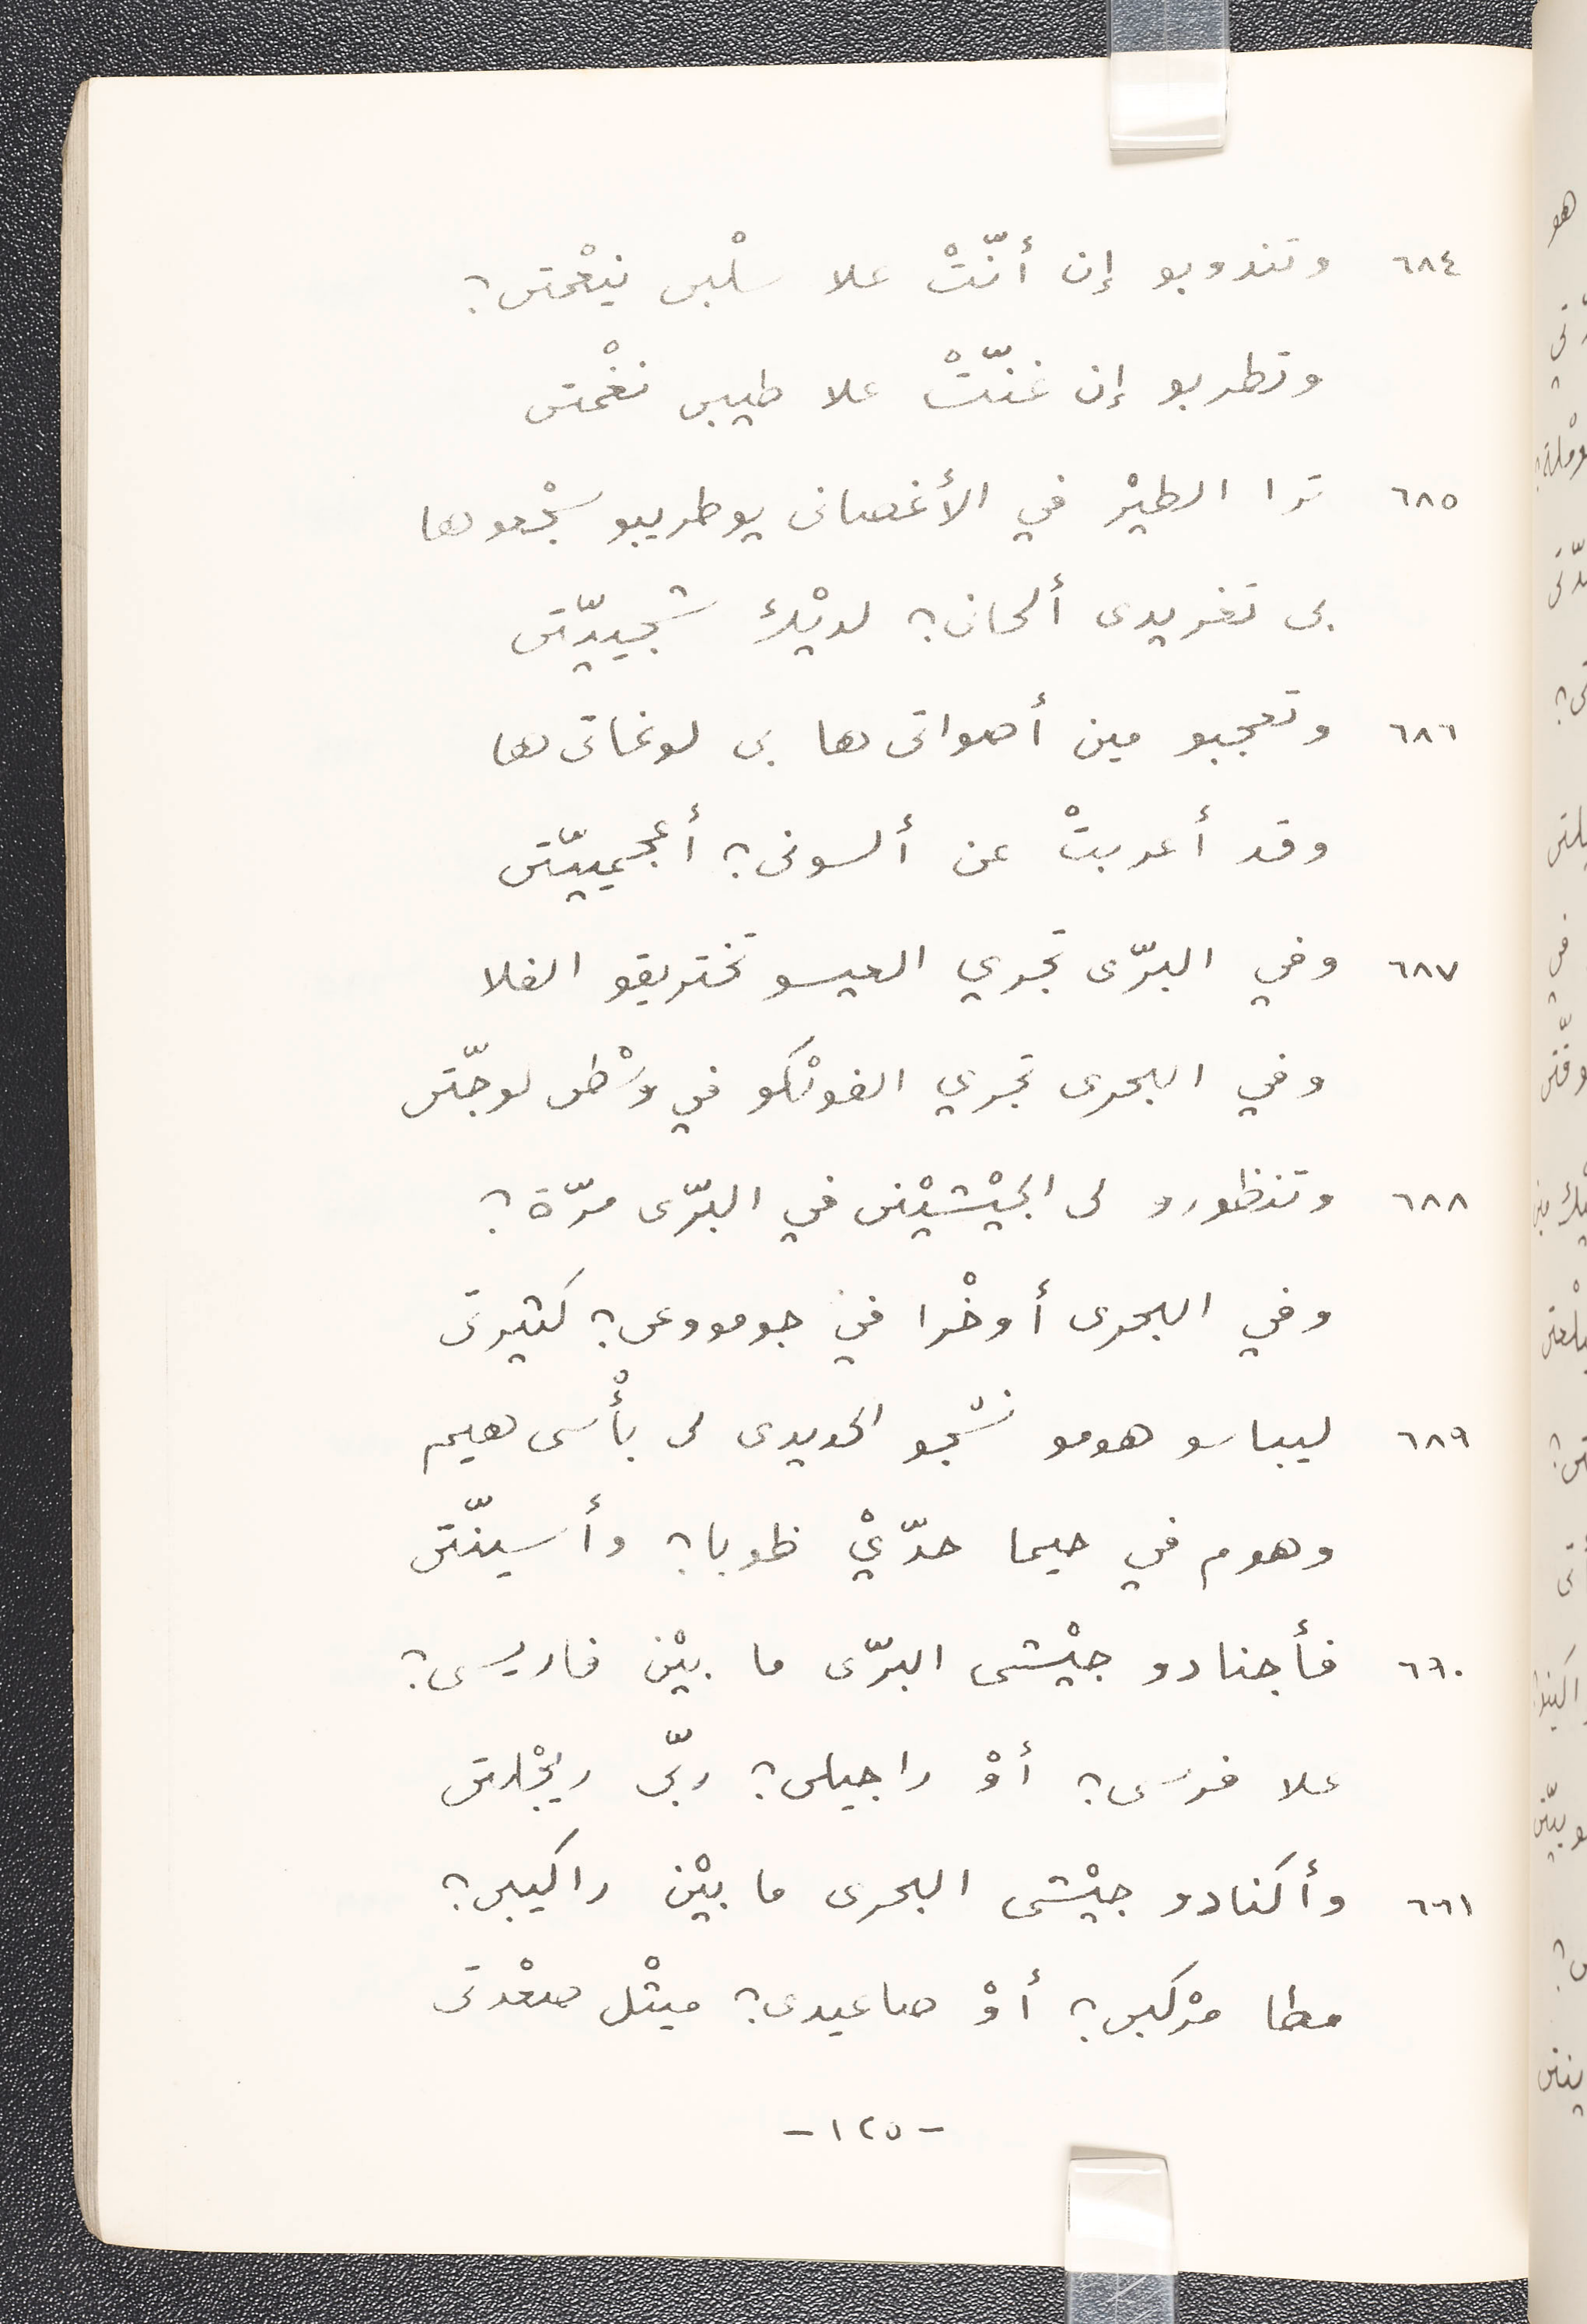 ٦٨٤ وتندوبو إن أنّتْ علا سلْبى نيعْمتى؟
وتطربو إن غنّتْ علا طيبى نغْمتى
٦٨٥ ترا الطيْر في الأغصانى يوطريبو سجْعوها
بى تغريدى ألحانى؟ لديْك شجييّتى
٦٨٦ وتعجبو مين أصواتى ها بى لوغاتى ها
وقد أعربتْ عن ألسونى؟ أعجمييّتى
٦٨٧ وفي البرّى تجري العيسو تختريقو الفلا
وفي البحرى تجري الفولْكو في وسْطى لوجّتى
٦٨٨ وتنظورو لى الجيْشيْنى في البرّى مرّة؟
وفي البحرى أوخْرا في جوموعى؟ كثيرتى
٦٨٩ ليباسو هومو نسْجو الحديدى لى بأْسى هيم
وهوم في حيما حدّيْ ظوبا؟ وأسينّتى
٦٩٠ فأجنادو جيْشى البرّى ما بيْن فاريسى؟
علا فرسى؟ أوْ راجيلى؟ ربّى ريجْلتى
٦٦١ وأكنادو جيْشى البحرى ما بيْن راكيبى؟
مطا مرْكبى؟ أوْ صاعيدى؟ ميثْل صعْدتى
-١٢٥-